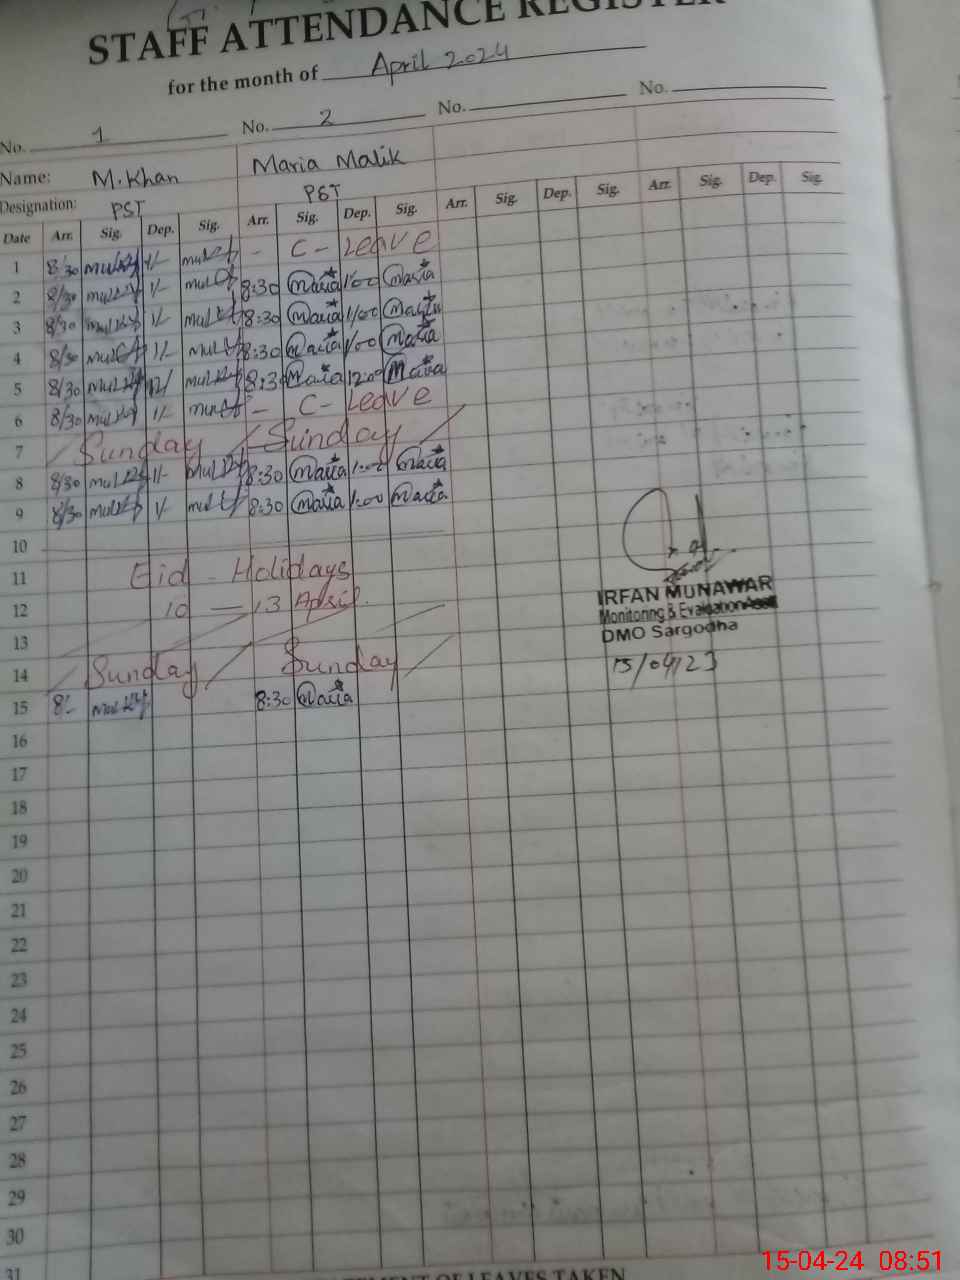 STAFF ATTENDANCE REGISTER
for the month of April 2024
No. 1 No. 2 No. No.
Name: M.Khan Maria Malik
Designation: PST PST
Date Arr. Sig. Dep. Sig. Arr. Sig. Dep. Sig. Arr. Sig. Dep. Sig. Arr. Sig. Dep. Sig.
1 8/30 1/- - C - Leave
2 8/30 1/- 8:30 Maria 1:00 Maria
3 8/30 1/- 8:30 Maria 1:00 Maria
4 8/30 1/- 8:30 Maria 1:00 Maria
5 8/30 12/ 8:30 Maria 12:00 Maria
6 8/30 1/- - C - Leave
7 Sunday Sunday
8 8/30 1/- 8:30 Maria 1:00 Maria
9 8/30 1/- 8:30 Maria 1:00 Maria
10
11 Eid - Holidays
12 10 - 13 April.
13
14 Sunday Sunday
15 8:- 8:30 Maria
IRFAN MUNAWAR
Monitoring & Evaluation
DMO Sargodha
15/04/23
16
17
18
19
20
21
22
23
24
25
26
27
28
29
30
31
OF LEAVES TAKEN
15-04-24 08:51